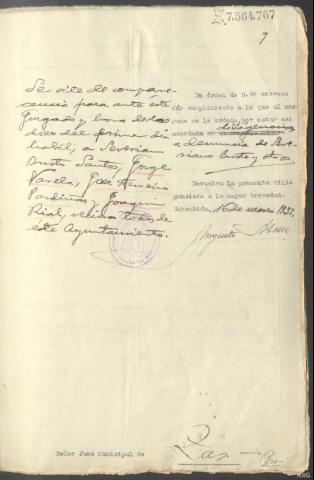 Z.7.564.767
7
Se cite de compare-
cencia para ante este
Juzgado y hora de las
diez del primer día
habil, a Severia
Santos, Jorge
Varela, José
Pardiñas y Joaquin
Rial, vecinos todos de
este Ayuntamiento.
De órden de S.Sª sírvase
dar cumplimiento a lo que al mar-
gen se le ordena por estar así
acordado en diligencias
a denuncia de Seve-
riano y otros
Devuelva la presente dili
genciada a la mayor brevedad.
Corcubión, 16 de marzo, 1935.
Señor Juez Municipal de
ARG